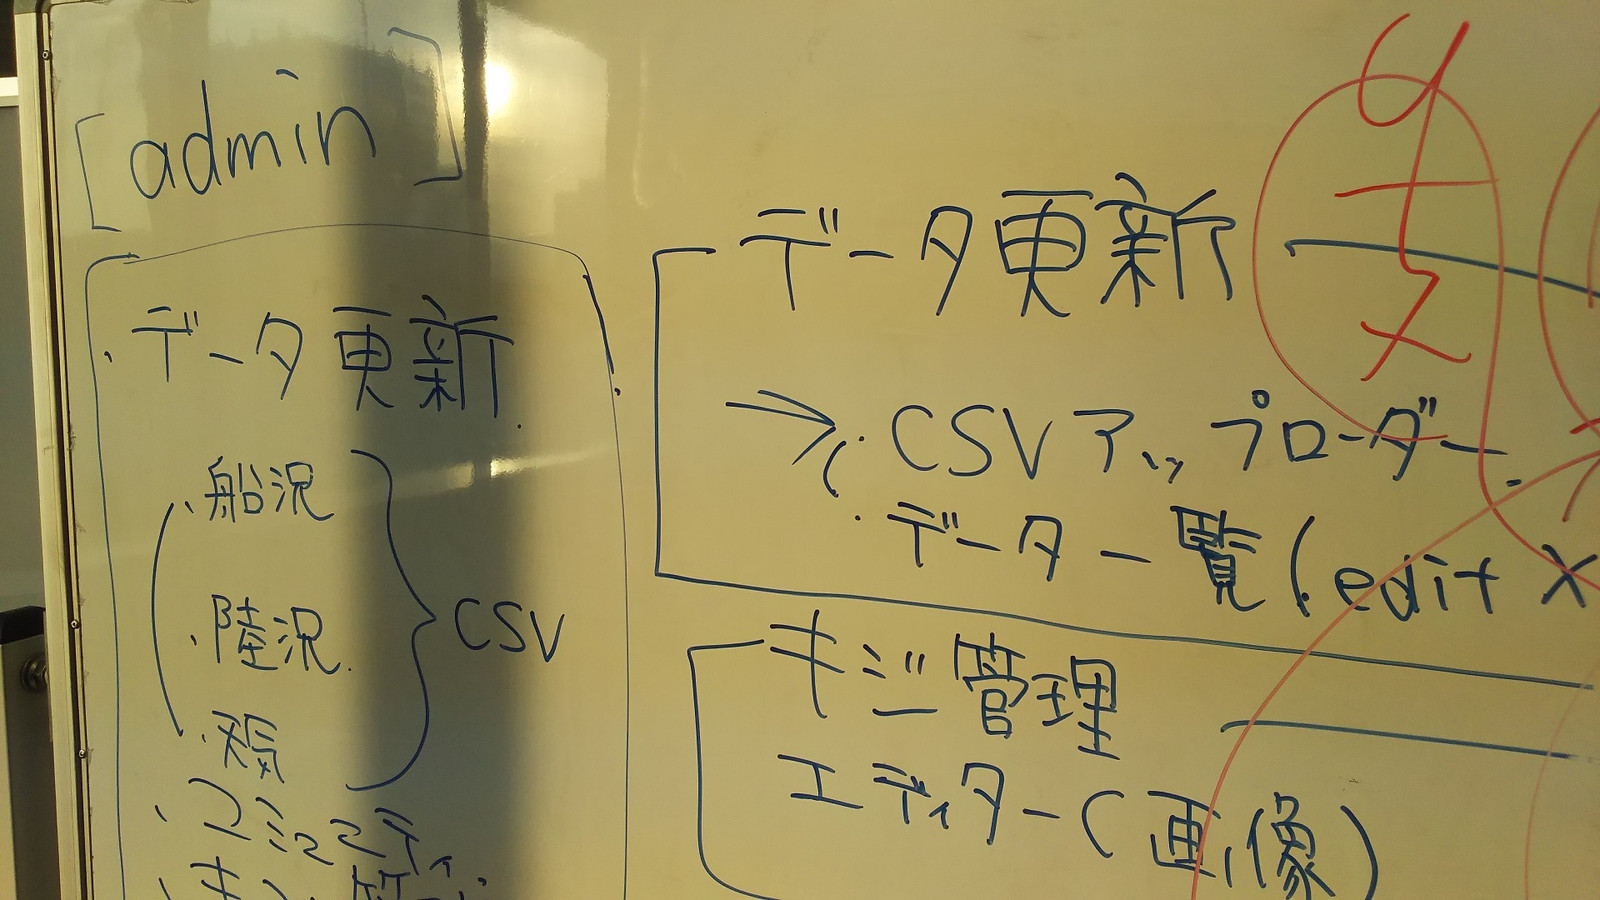 [admin]
・データ更新
・船況
・陸況
CSV
・コミュニティ
データ更新
→ ・CSVアップローダー
・データ一覧(edit ×
キジ管理
エディター(画像)